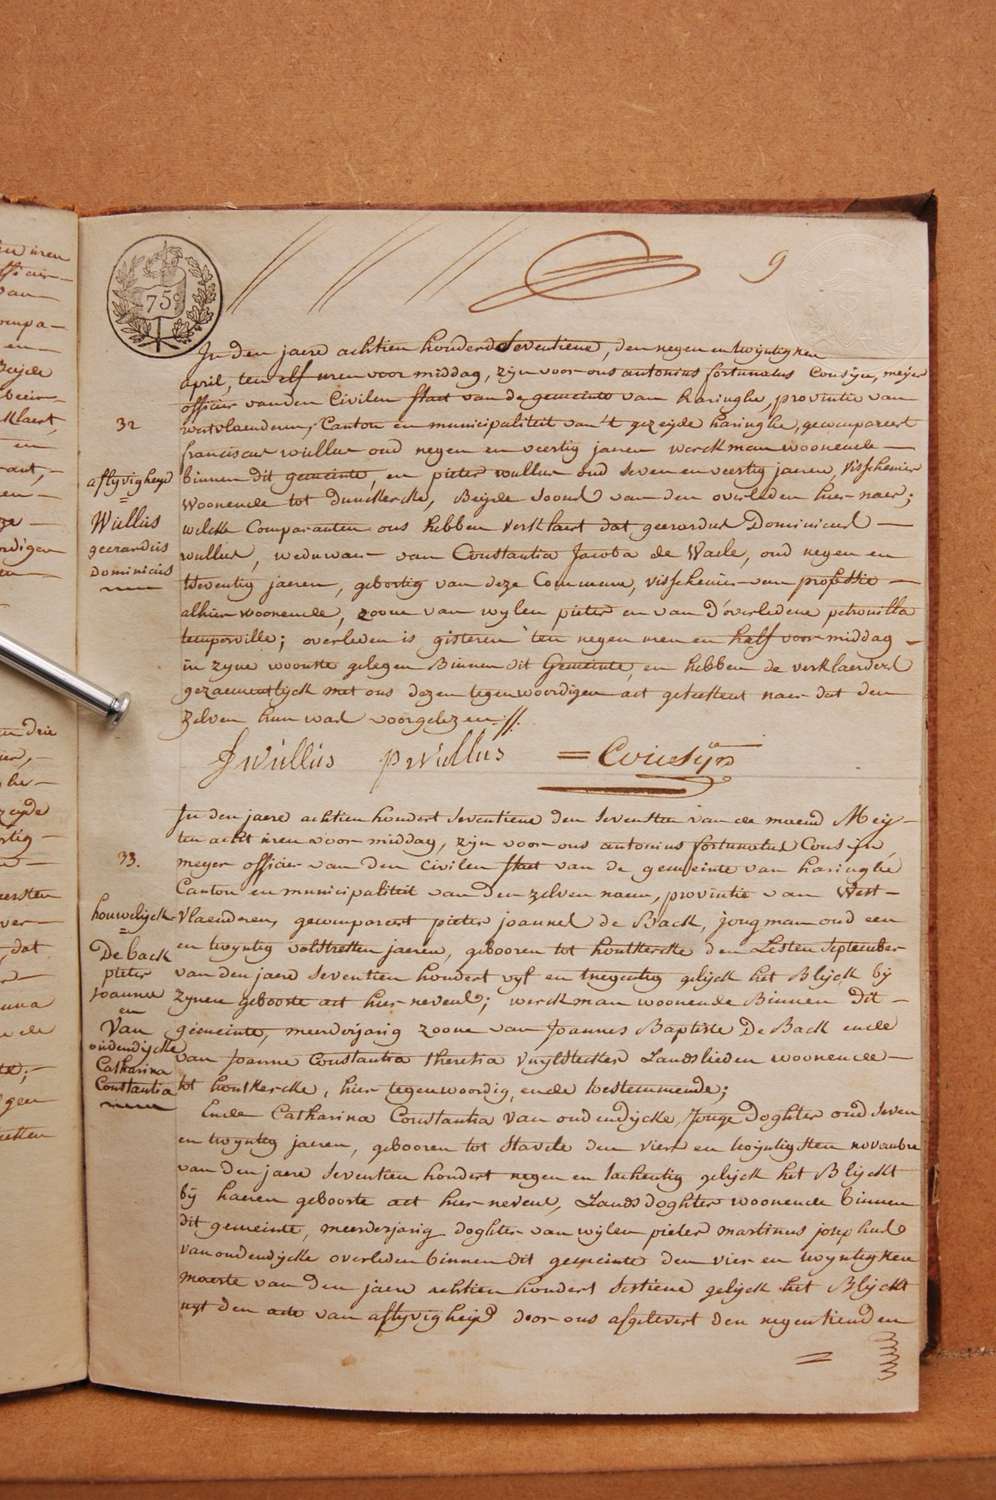 75
9
In den jaere achtien honderd Seventiene, den negen en twyntigsten
april, ten elf uren voor middag, zijn voor ons antonius fortunatus Cousijn, meijer
officier van den Civilen staet van de gemeente van haringhe, provintie van
westvlaenderen, Canton en municipaliteit van 't gezeijde haringhe, gecompareert
franciscus wullus oud negen en veertig jaeren werckman woonende
binnen dit gemeente, en pieter wullus oud seven en veertig jaeren, visschenier
woonende tot dunckercke, Beijde soons van den overleden hier naer;
welcke Comparanten ons hebben verklaert dat geerardus Dominicus
wullus, weduwaer van Constantia Jacoba de Waele, oud negen en
tseventig jaeren, gebortig van deze Commune, visschenier van professie
alhier woonende, zoone van wylen pieter en van d'overledene petronilla
temporville; overleden is gisteren ten negen uren en half voor middag
in zyne woonste gelegen Binnen dit Gemeente, en hebben de verklaerders
gezaementlijck met ons dezen tegenwoordigen act geteekent naer dat den
zelven hun was voorgelezen //.
32
aflyvigheyd
=
Wullus
geerardus
dominicus
f wullus p wullus = Cousijn
In den jaere achtien hondert seventiene den sevensten van de maend Meij
ten acht uren voor middag, zijn voor ons antonius fortunatus Cousijn
meyer officier van den civilen staet van de gemeente van haringhe
Canton en municipaliteit van den zelven naem, provintie van West-
Vlaenderen, gecompareert pieter joannes de Back, jongman oud een
en twyntig volstrekten jaeren, gebooren tot houtkercke den Lesten September
van den jaere seventien hondert vyf en tnegentig gelijck het Blijck bij
zijnen geboorte act hier nevens; werckman woonende Binnen dit
gemeinte, meerderjarig zoone van Joannes Baptiste De Back ende
van Joanne Constantia theresia vuylsteker Landslieden woonende
tot houtkercke, hier tegenwoordig, ende toestemmende;
Ende Catharina Constantia Van oudendijcke, Jonge Doghter oud seven
en twyntig jaeren, gebooren tot Stavele den vier en twijntigsten novembre
van den jaere seventien hondert negen en tachentig gelijck het Blijckt
bij haeren geboorte act hier nevens, Landsdoghter woonende binnen
dit gemeente, meerderjarig doghter van wijlen pieter martinus josephus
van oudendijcke overleden binnen dit gemeinte den vier en twyntigsten
maerte van den jaere achtien hondert sestiene gelijck het Blijckt
uyt den acte van aflyvigheyd door ons afgelevert den negentienden
33.
houwelijck
=
De back
pieter
joannes
en
Van
oudendijcke
Catharina
Constantia